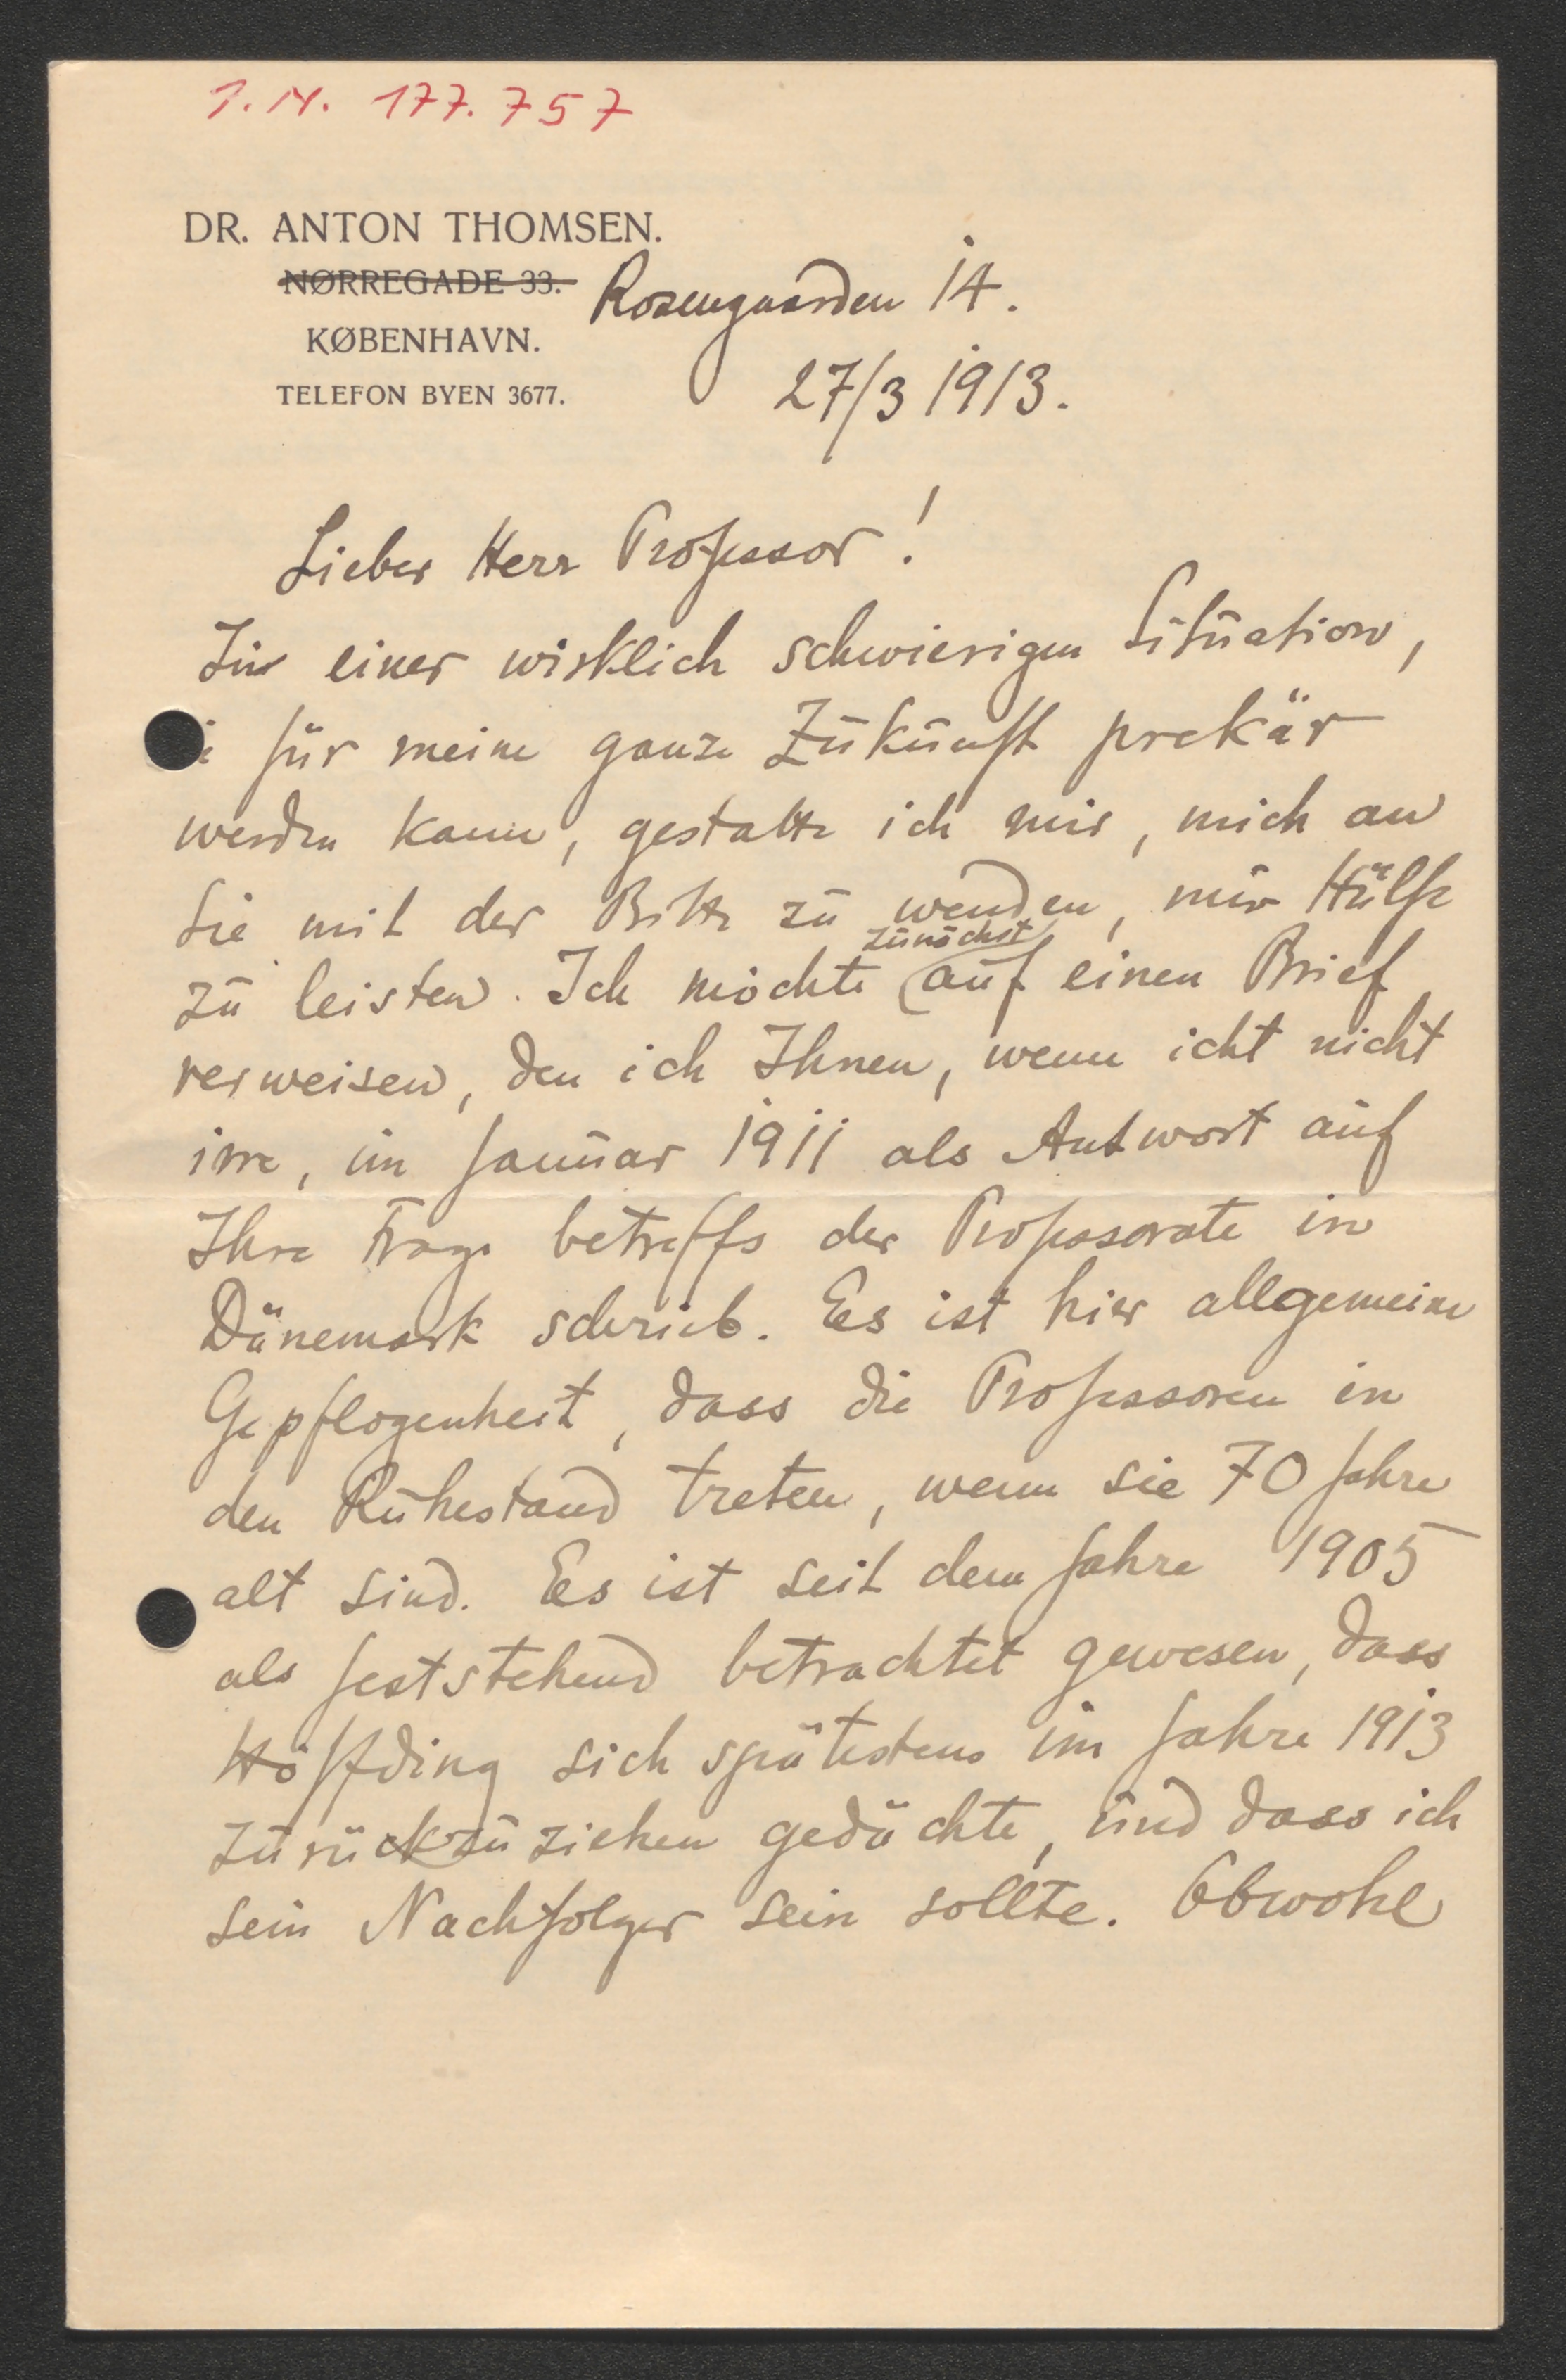 I.N. 177.757
DR. ANTON THOMSEN.
NØRREGADE 33. Rosengaarden 14.
KØBENHAVN.
TELEFON BYEN 3677.
27/3 1913.
Lieber Herr Professor!
In einer wirklich schwierigen Situation,
für meine ganze Zukunft prekär
werden kann, gestatte ich mir, mich an
Sie mit der Bitte zu wenden, mir Hülfe
zu leisten. Ich möchte zunächst auf einen Brief
verweisen, den ich Ihnen, wenn icht nicht
irre, im Januar 1911 als Antwort auf
Ihre Frage betreffs der Professorate in
Dänemark schrieb. Es ist hier allgemeine
Gepflogenheit, dass die Professoren in
den Ruhestand treten, wenn sie 70 Jahre
alt sind. Es ist seit dem Jahre 1905
als feststehend betrachtet gewesen, dass
Höffding sich spätestens im Jahre 1913
zurückzuziehen gedächte, und dass ich
sein Nachfolger sein sollte. Obwohl